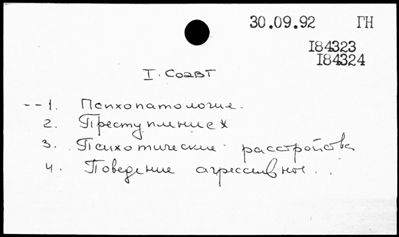 30.09.92 ГН
I84323
I84324
I. Соавт
--1. Психопатология.
2. Преступление х
3. Психотические расстройства
4. Поведение агрессивное...